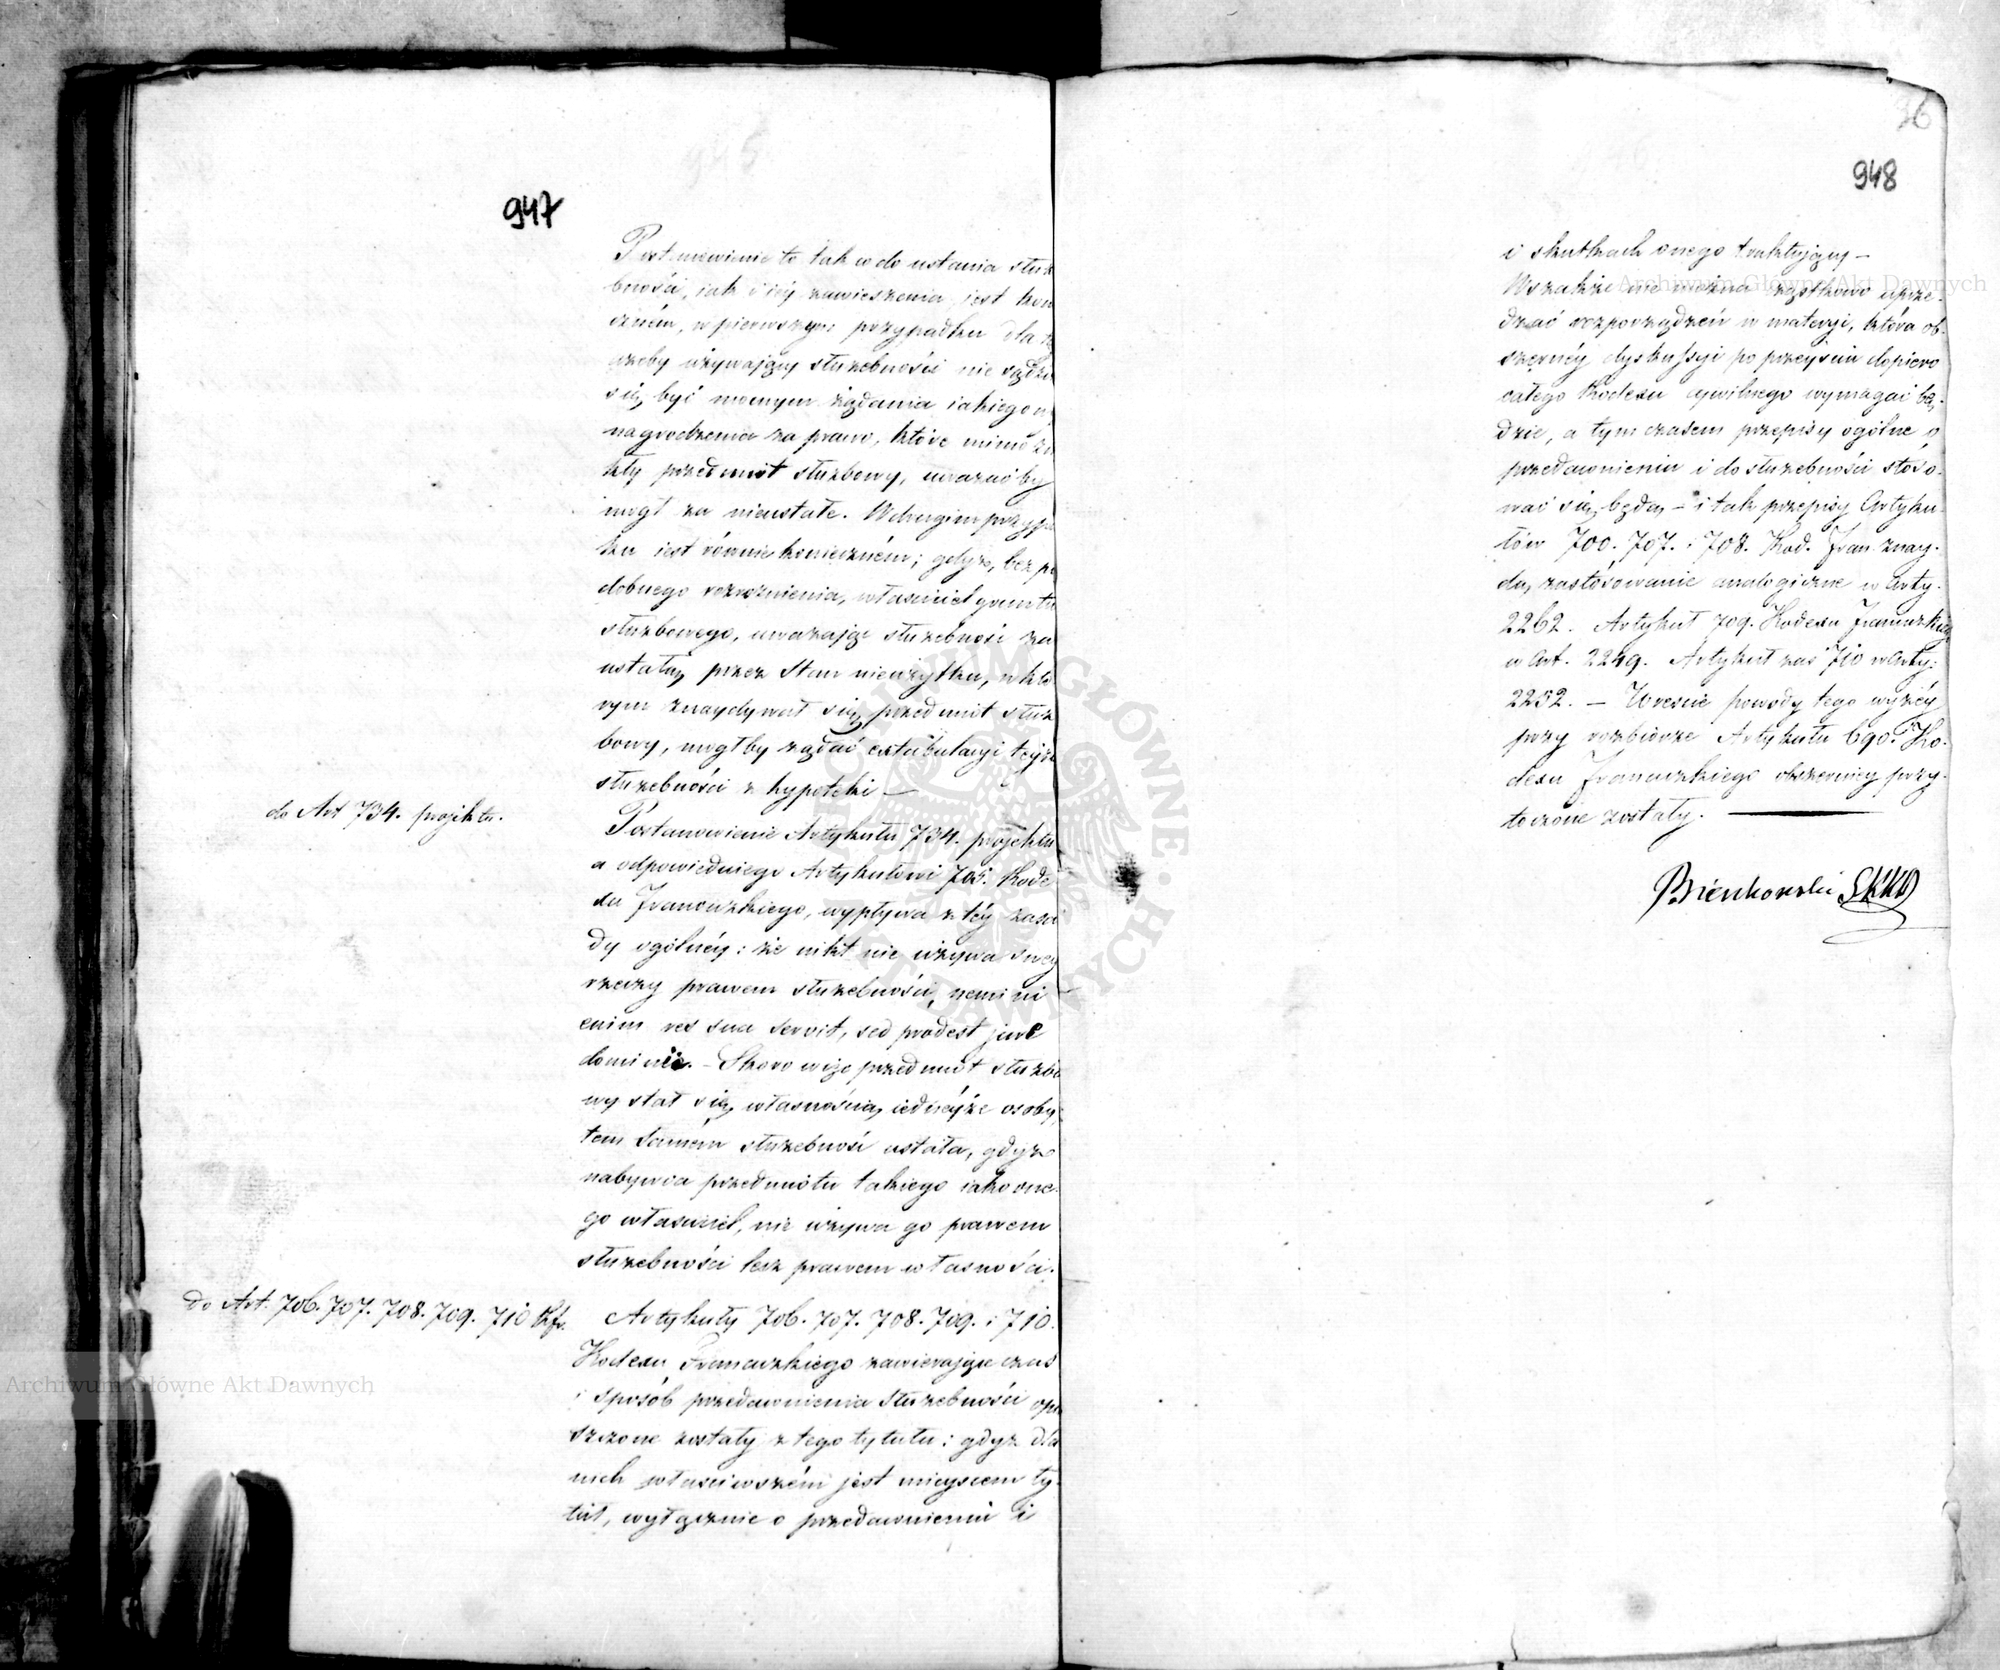 947
Postanowienie to tak co do ustania służ
bności, iak i iéy zawieszenia iest kon
czném, w pierwszym przypadku dla
ażeby używaiący służebności nie sądził
się być mocnym żądania iakiego
nagrodzenia za prawo, które mimo
kły przedmiot służbowy, uważać by
mógł za nieustałe. W drugim przypa
ku iest równie konieczném; gdyż, bez po
dobnego rozróżnienia, właściciel gruntu
służbowego, uważaiąc służebność za
ustałą, przez stan nieużytku, w któ
rym znaydywał się, przedmiot służ
bowy, mógłby żądać extabulacyi teyże
służebności z hypoteki —
do Art 734. projektu.
Postanowienie Artykułu 734. projektu
a odpowiedniego Artykułowi 705. Kode
xu Francuzkiego, wypływa z téy zasa
dy ogólnéy: że nikt nie używa swey
rzeczy prawem służebności, nemini
enim res sua servit, sed prodest jure
dominii. – Skoro więc przedmiot służbo
wy stał się, własnością, iednéyże osoby;
tem samém służebność ustała, gdyż
nabywca przedmiotu takiego iako one-
go właściciel, nie używa go prawem
służebności lecz prawem własności.
do Art. 706. 707. 708. 709. 710 Kfr.
Artykuły 706. 707. 708. 709. i 710.
Kodexu Francuzkiego zawieraiące czas
i sposób przedawnienia służebności opu
szczone zostały z tego tytułu; gdyż dla
nich właściwszém jest mieyscem ty-
tuł, wyłącznie o przedawnieniu i
36
948
i skutkach onego traktuiący –
Wszakże nie można cząstkowo uprze-
dzać rozporządzeń w materyi, która ob-
szernéy dyskussyi po przeyściu dopiero
całego Kodexu cywilnego wymagać bę-
dzie, a tymczasem przepisy ogólne o
przedawnieniu i do służebności stoso-
wać się, będą, – i tak przepisy Artyku
łów 706. 707. i 708. Kod. Fran. znay-
dą, zastósowanie analogiczne w Arty.
2262. Artykuł 709. Kodexu Francuzkiego
w Art. 2249. Artykuł zaś 710 w Arty:
2252. – Wrescie powody tego wyżéy
przy rozbiorze Artykułu 690. Ko-
dexu Francuzkiego obszerniéy przy-
toczone zostały.
Bieńkowski
Archiwum Główne Akt Dawnych
Archiwum Główne Akt Dawnych
ARCHIWUM GŁÓWNE AKT DAWNYCH